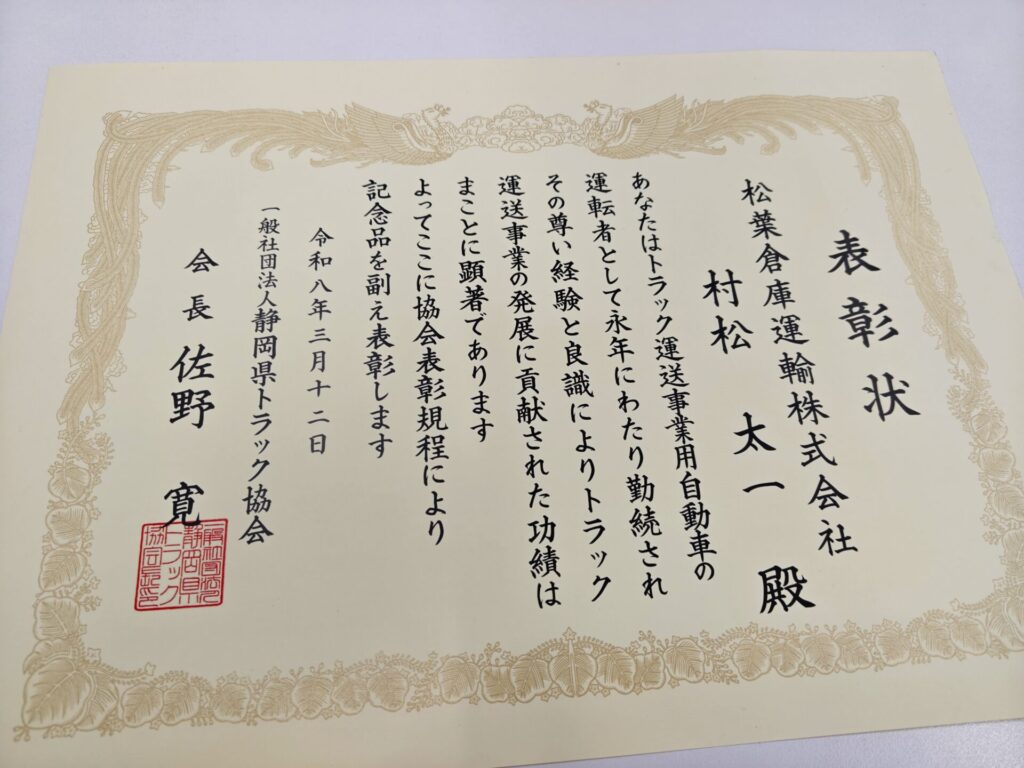 表彰状
松葉倉庫運輸株式会社
村松 太一 殿
あなたはトラック運送事業用自動車の
運転者として永年にわたり勤続され
その尊い経験と良識によりトラック
運送事業の発展に貢献された功績は
まことに顕著であります
よってここに協会表彰規程により
記念品を副え表彰します
令和八年三月十二日
一般社団法人静岡県トラック協会
会長 佐野 寛
一般社団法人
静岡県
トラック
協会長印